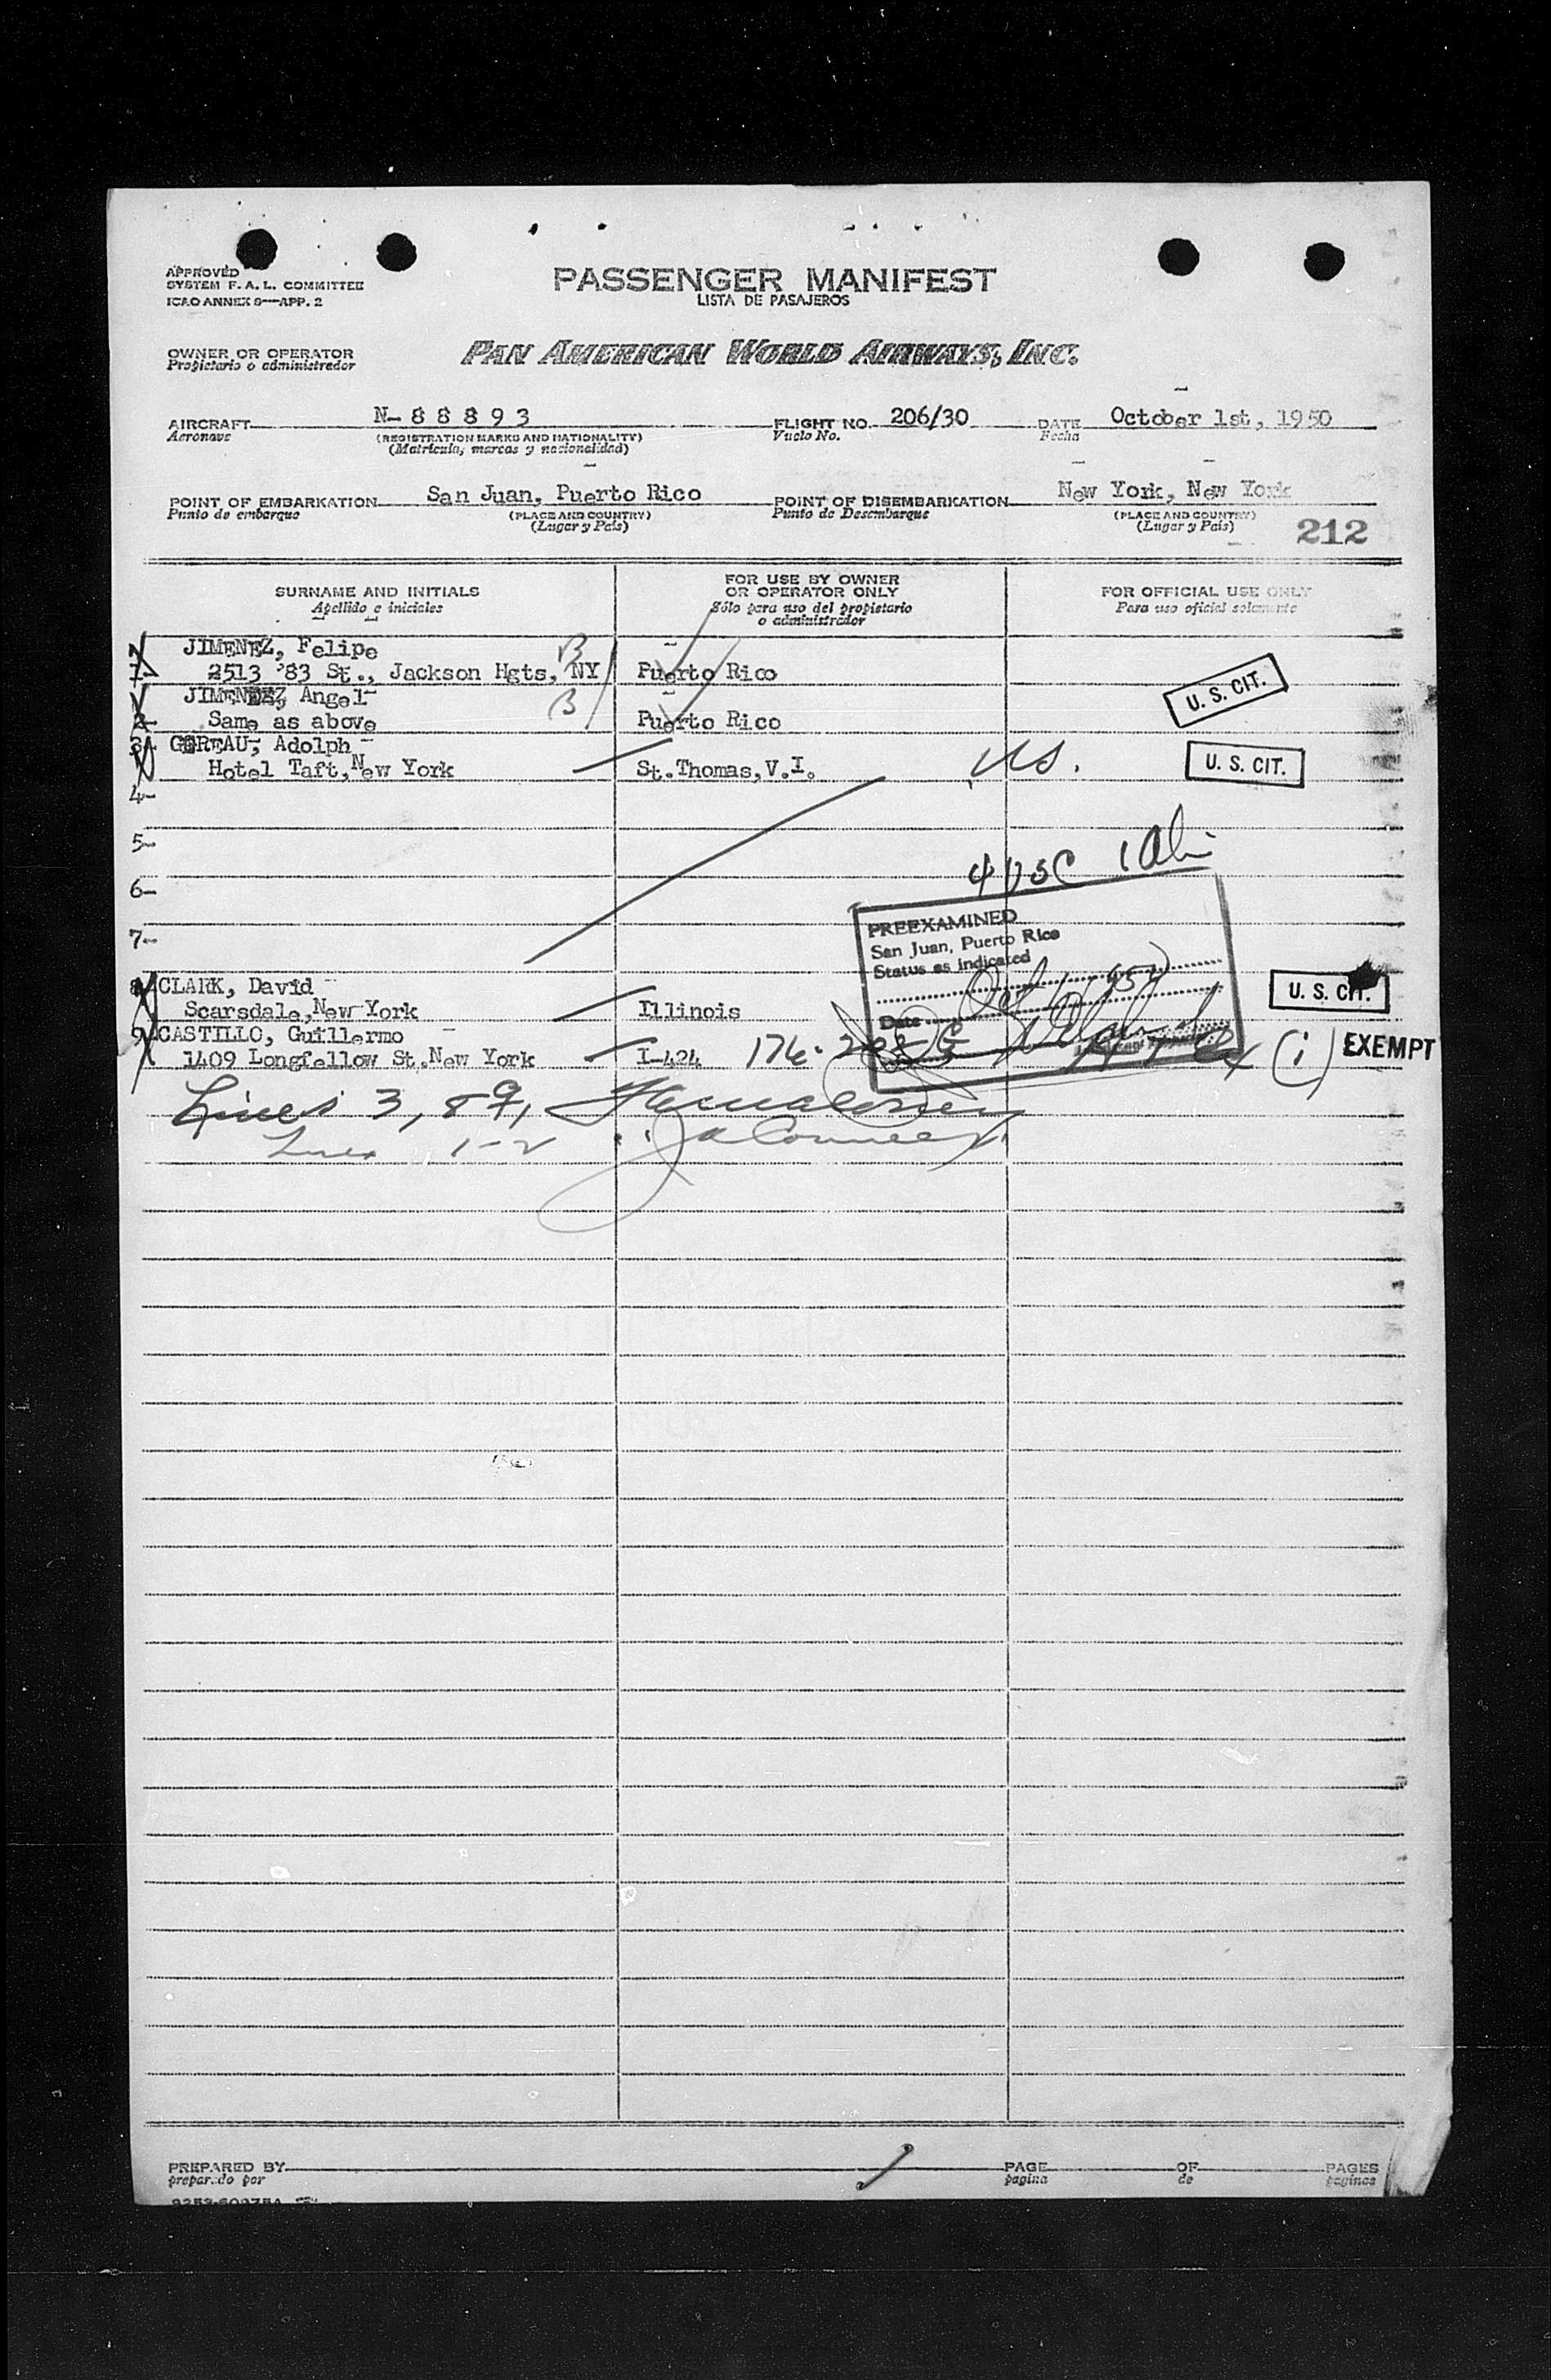 APPROVED
SYSTEM F. A. L. COMMITTEE
ICAO ANNEX 9—APP. 2
PASSENGER MANIFEST
LISTA DE PASAJEROS
OWNER OR OPERATOR
Propietario o administrador
PAN AMERICAN WORLD AIRWAYS, INC.
AIRCRAFT N-88893 FLIGHT NO. 206/30 DATE October 1st, 1950
Aeronave (REGISTRATION MARKS AND NATIONALITY) Vuelo No. Fecha
(Matricula, marcas y nacionalidad)
POINT OF EMBARKATION San Juan, Puerto Rico POINT OF DISEMBARKATION New York, New York
Punto de embarque (PLACE AND COUNTRY) Punto de Desembarque (PLACE AND COUNTRY)
(Lugar y País) (Lugar y País) 212
SURNAME AND INITIALS FOR USE BY OWNER OR OPERATOR ONLY FOR OFFICIAL USE ONLY
Apellido e iniciales Sólo para uso del propietario o administrador Para uso oficial solamente
JIMENEZ, Felipe B
1- 2513 83 St., Jackson Hgts, NY Puerto Rico
JIMENEZ, Angel B U. S. CIT.
2- Same as above Puerto Rico
3- GEREAU, Adolph
Hotel Taft, New York St. Thomas, V.I. US. U. S. CIT.
4-
5-
4 USC 1 Ali
6-
PREEXAMINED
7- San Juan, Puerto Rico
Status as indicated
8- CLARK, David U. S. CIT.
Scarsdale, New York Illinois
Date Oct 1 1950
9- CASTILLO, Guillermo
1409 Longfellow St. New York I-424 (i) EXEMPT
Lines 3, 8 9,
Lines 1-2
PREPARED BY PAGE OF PAGES
preparado por pagina de paginas